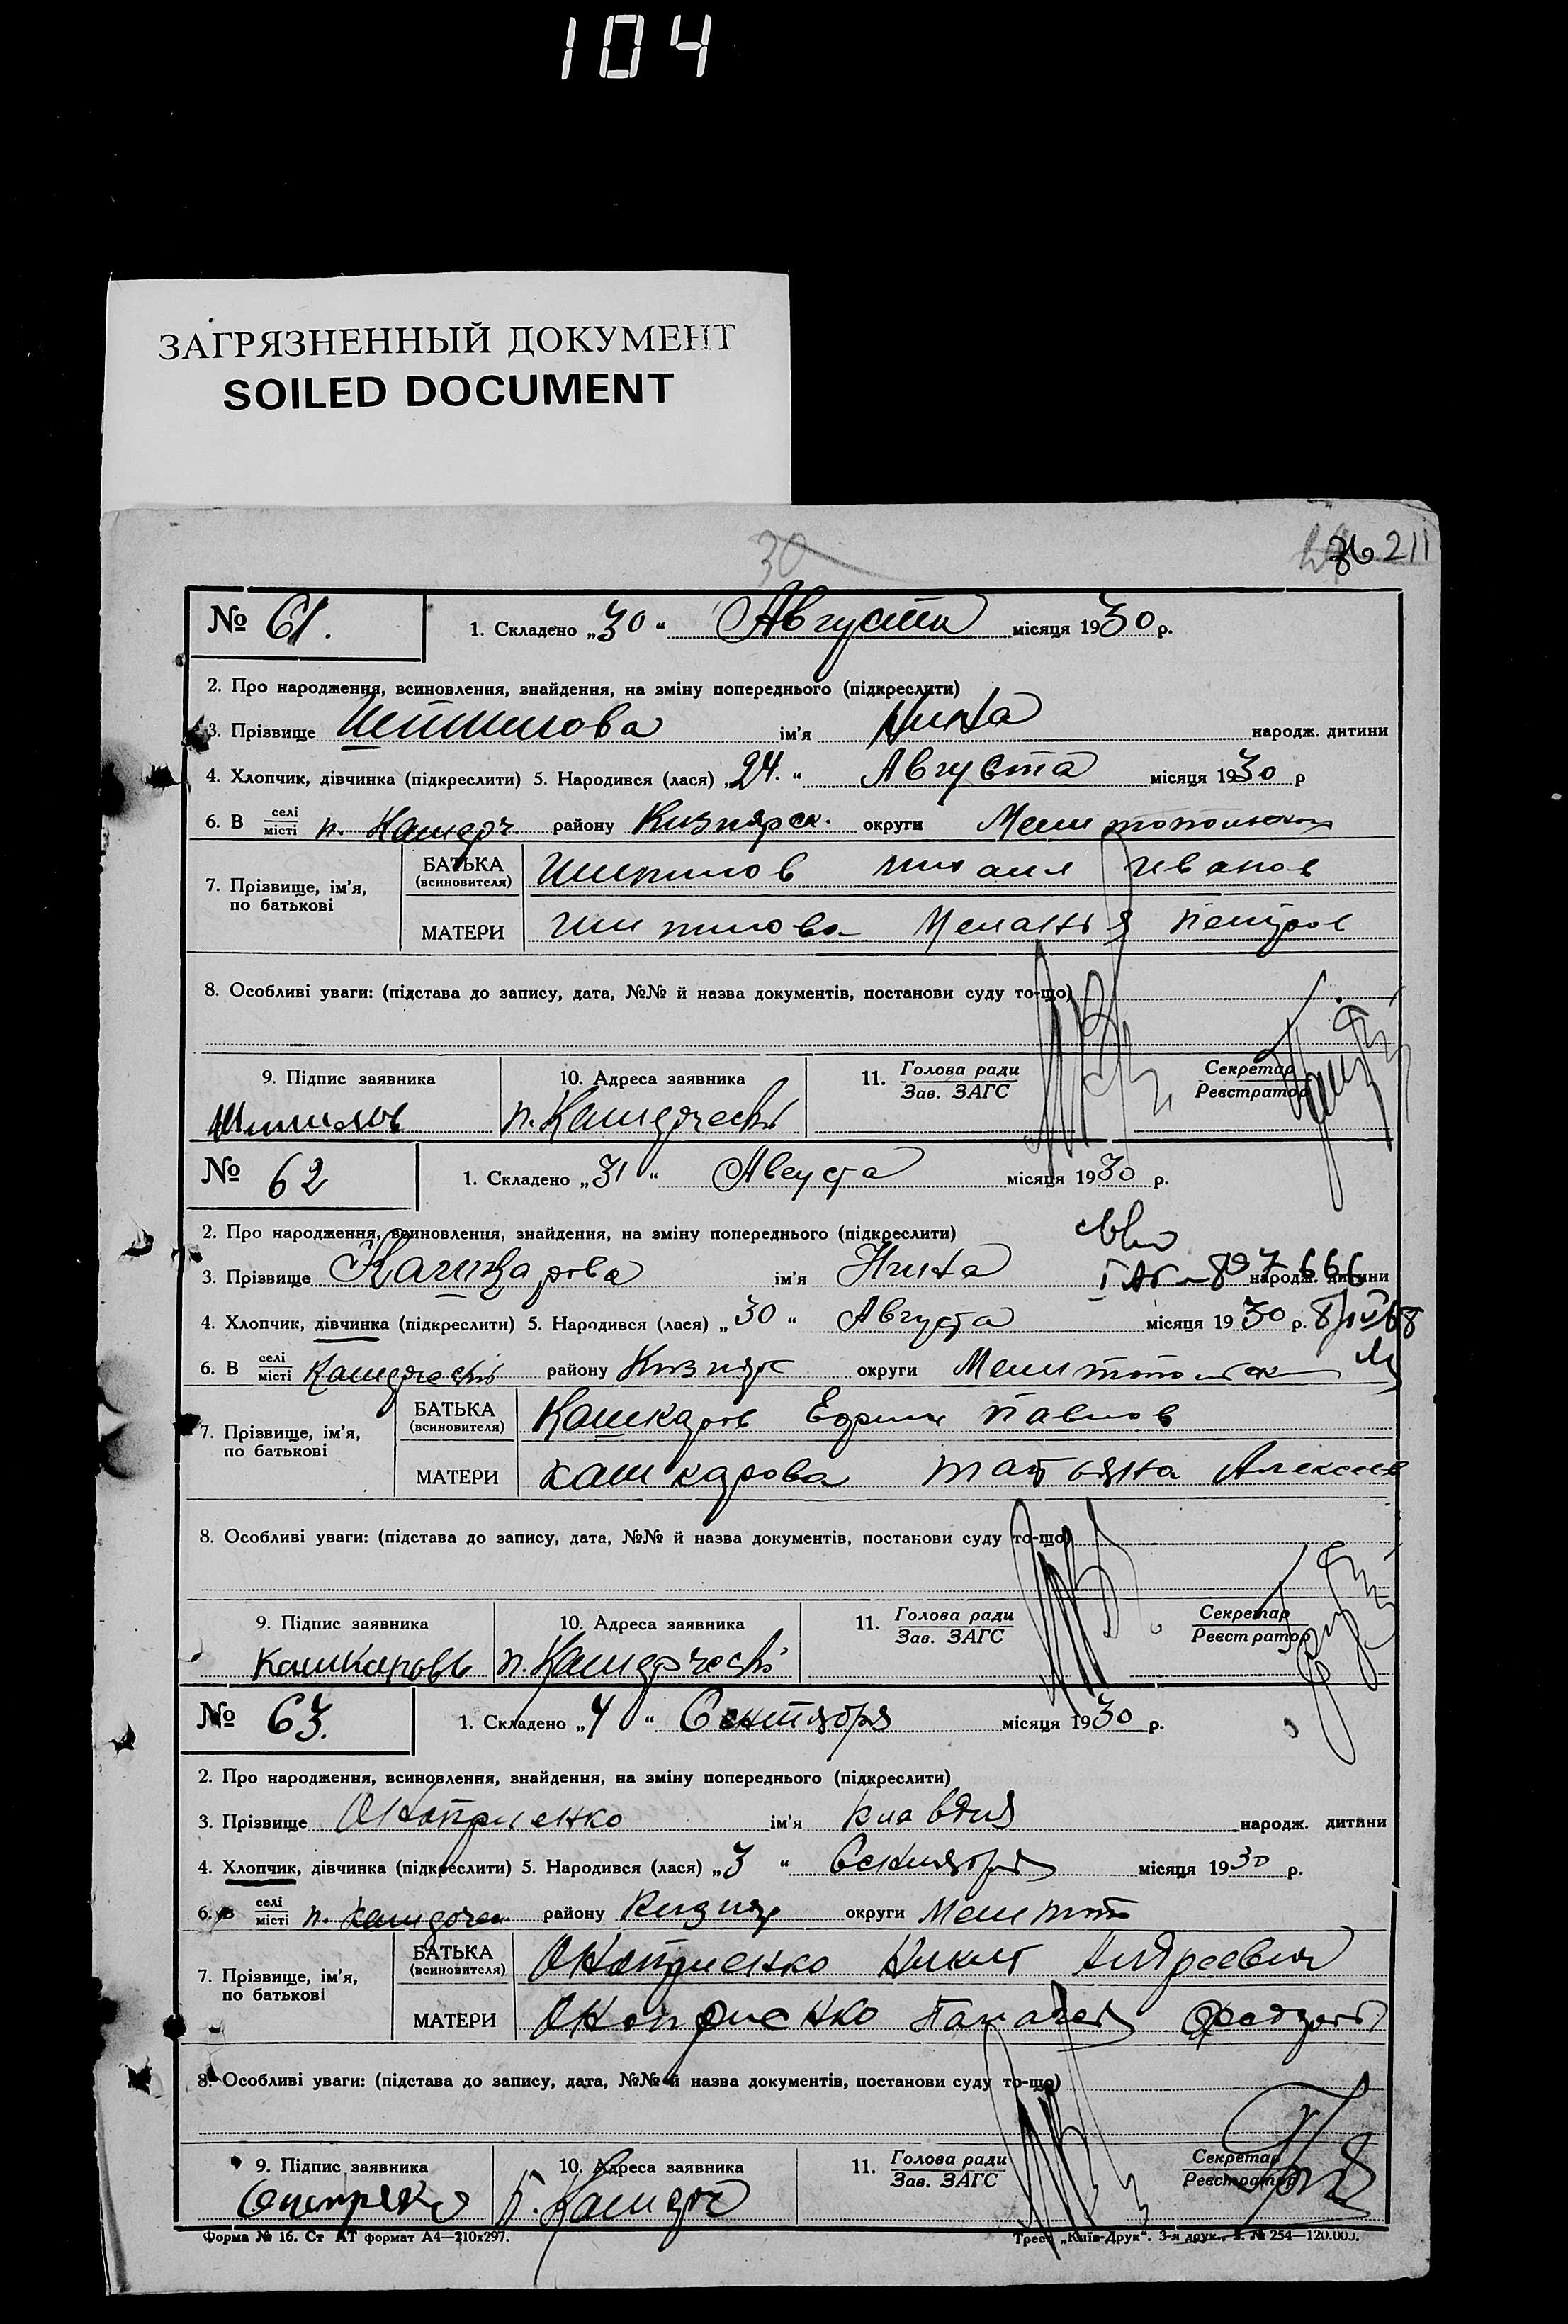 104
ЗАГРЯЗНЕННЫЙ ДОКУМЕНТ
SOILED DOCUMENT
30
211
№ 61. 1. Складено „30“ Августа місяця 1930 р.
2. Про народження, всиновлення, знайдення, на зміну попереднього (підкреслити)
3. Прізвище Шипилова ім'я Нина народж. дитини
4. Хлопчик, дівчинка (підкреслити) 5. Народився (лася) „24.“ Августа місяця 1930 р
6. В селі/місті п. района району Кизиярск. округи Мелитопольской
7. Прізвище, ім'я, по батькові
БАТЬКА (всиновителя) Шипилов Михаил Иванов
МАТЕРИ Шипилова Меланья Петров
8. Особливі уваги: (підстава до запису, дата, №№ й назва документів, постанови суду то-що)
9. Підпис заявника 10. Адреса заявника 11. Голова ради/Зав. ЗАГС Секретар/Реєстратор
Шипилов п.
№ 62 1. Складено „31“ Августа місяця 1930 р.
2. Про народження, всиновлення, знайдення, на зміну попереднього (підкреслити)
3. Прізвище Кашкарова ім'я Нина народж. дитини
897666
4. Хлопчик, дівчинка (підкреслити) 5. Народився (лася) „30“ Августа місяця 1930 р.
6. В селі/місті району Кизияр округи Мелитопольск
7. Прізвище, ім'я, по батькові
БАТЬКА (всиновителя) Кашкаров Ефим Павлов
МАТЕРИ Кашкарова Татьяна Алексеев
8. Особливі уваги: (підстава до запису, дата, №№ й назва документів, постанови суду то-що)
9. Підпис заявника 10. Адреса заявника 11. Голова ради/Зав. ЗАГС Секретар/Реєстратор
Кашкаровъ п.
№ 63. 1. Складено „4“ Сентября місяця 1930 р.
2. Про народження, всиновлення, знайдення, на зміну попереднього (підкреслити)
3. Прізвище Оноприенко ім'я Клавдия народж. дитини
4. Хлопчик, дівчинка (підкреслити) 5. Народився (лася) „3“ Сентября місяця 1930 р.
6. В селі/місті п. району Кизияр округи Мелитоп
7. Прізвище, ім'я, по батькові
БАТЬКА (всиновителя) Оноприенко Никит Андреевич
МАТЕРИ Оноприенко
8. Особливі уваги: (підстава до запису, дата, №№ й назва документів, постанови суду то-що)
9. Підпис заявника 10. Адреса заявника 11. Голова ради/Зав. ЗАГС Секретар/Реєстратор
Форма № 16. Ст АТ формат А4—210х297. Трест „Київ-Друк“. 3-я друк., З. № 254—120.000.